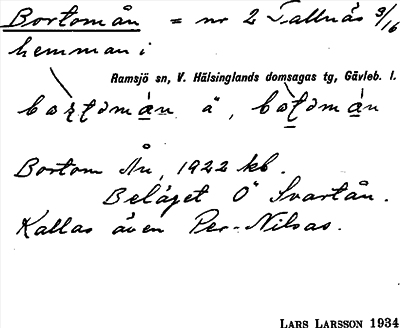 Bortomån = nr 2 Tallnäs 3/16
hemman i
Ramsjö sn, V. Hälsinglands domsagas tg, Gävleb. l.
Bortom Ån, 1922 kb.
Beläget Ö Svartån.
Kallas även Per-Nilsas.
LARS LARSSON 1934